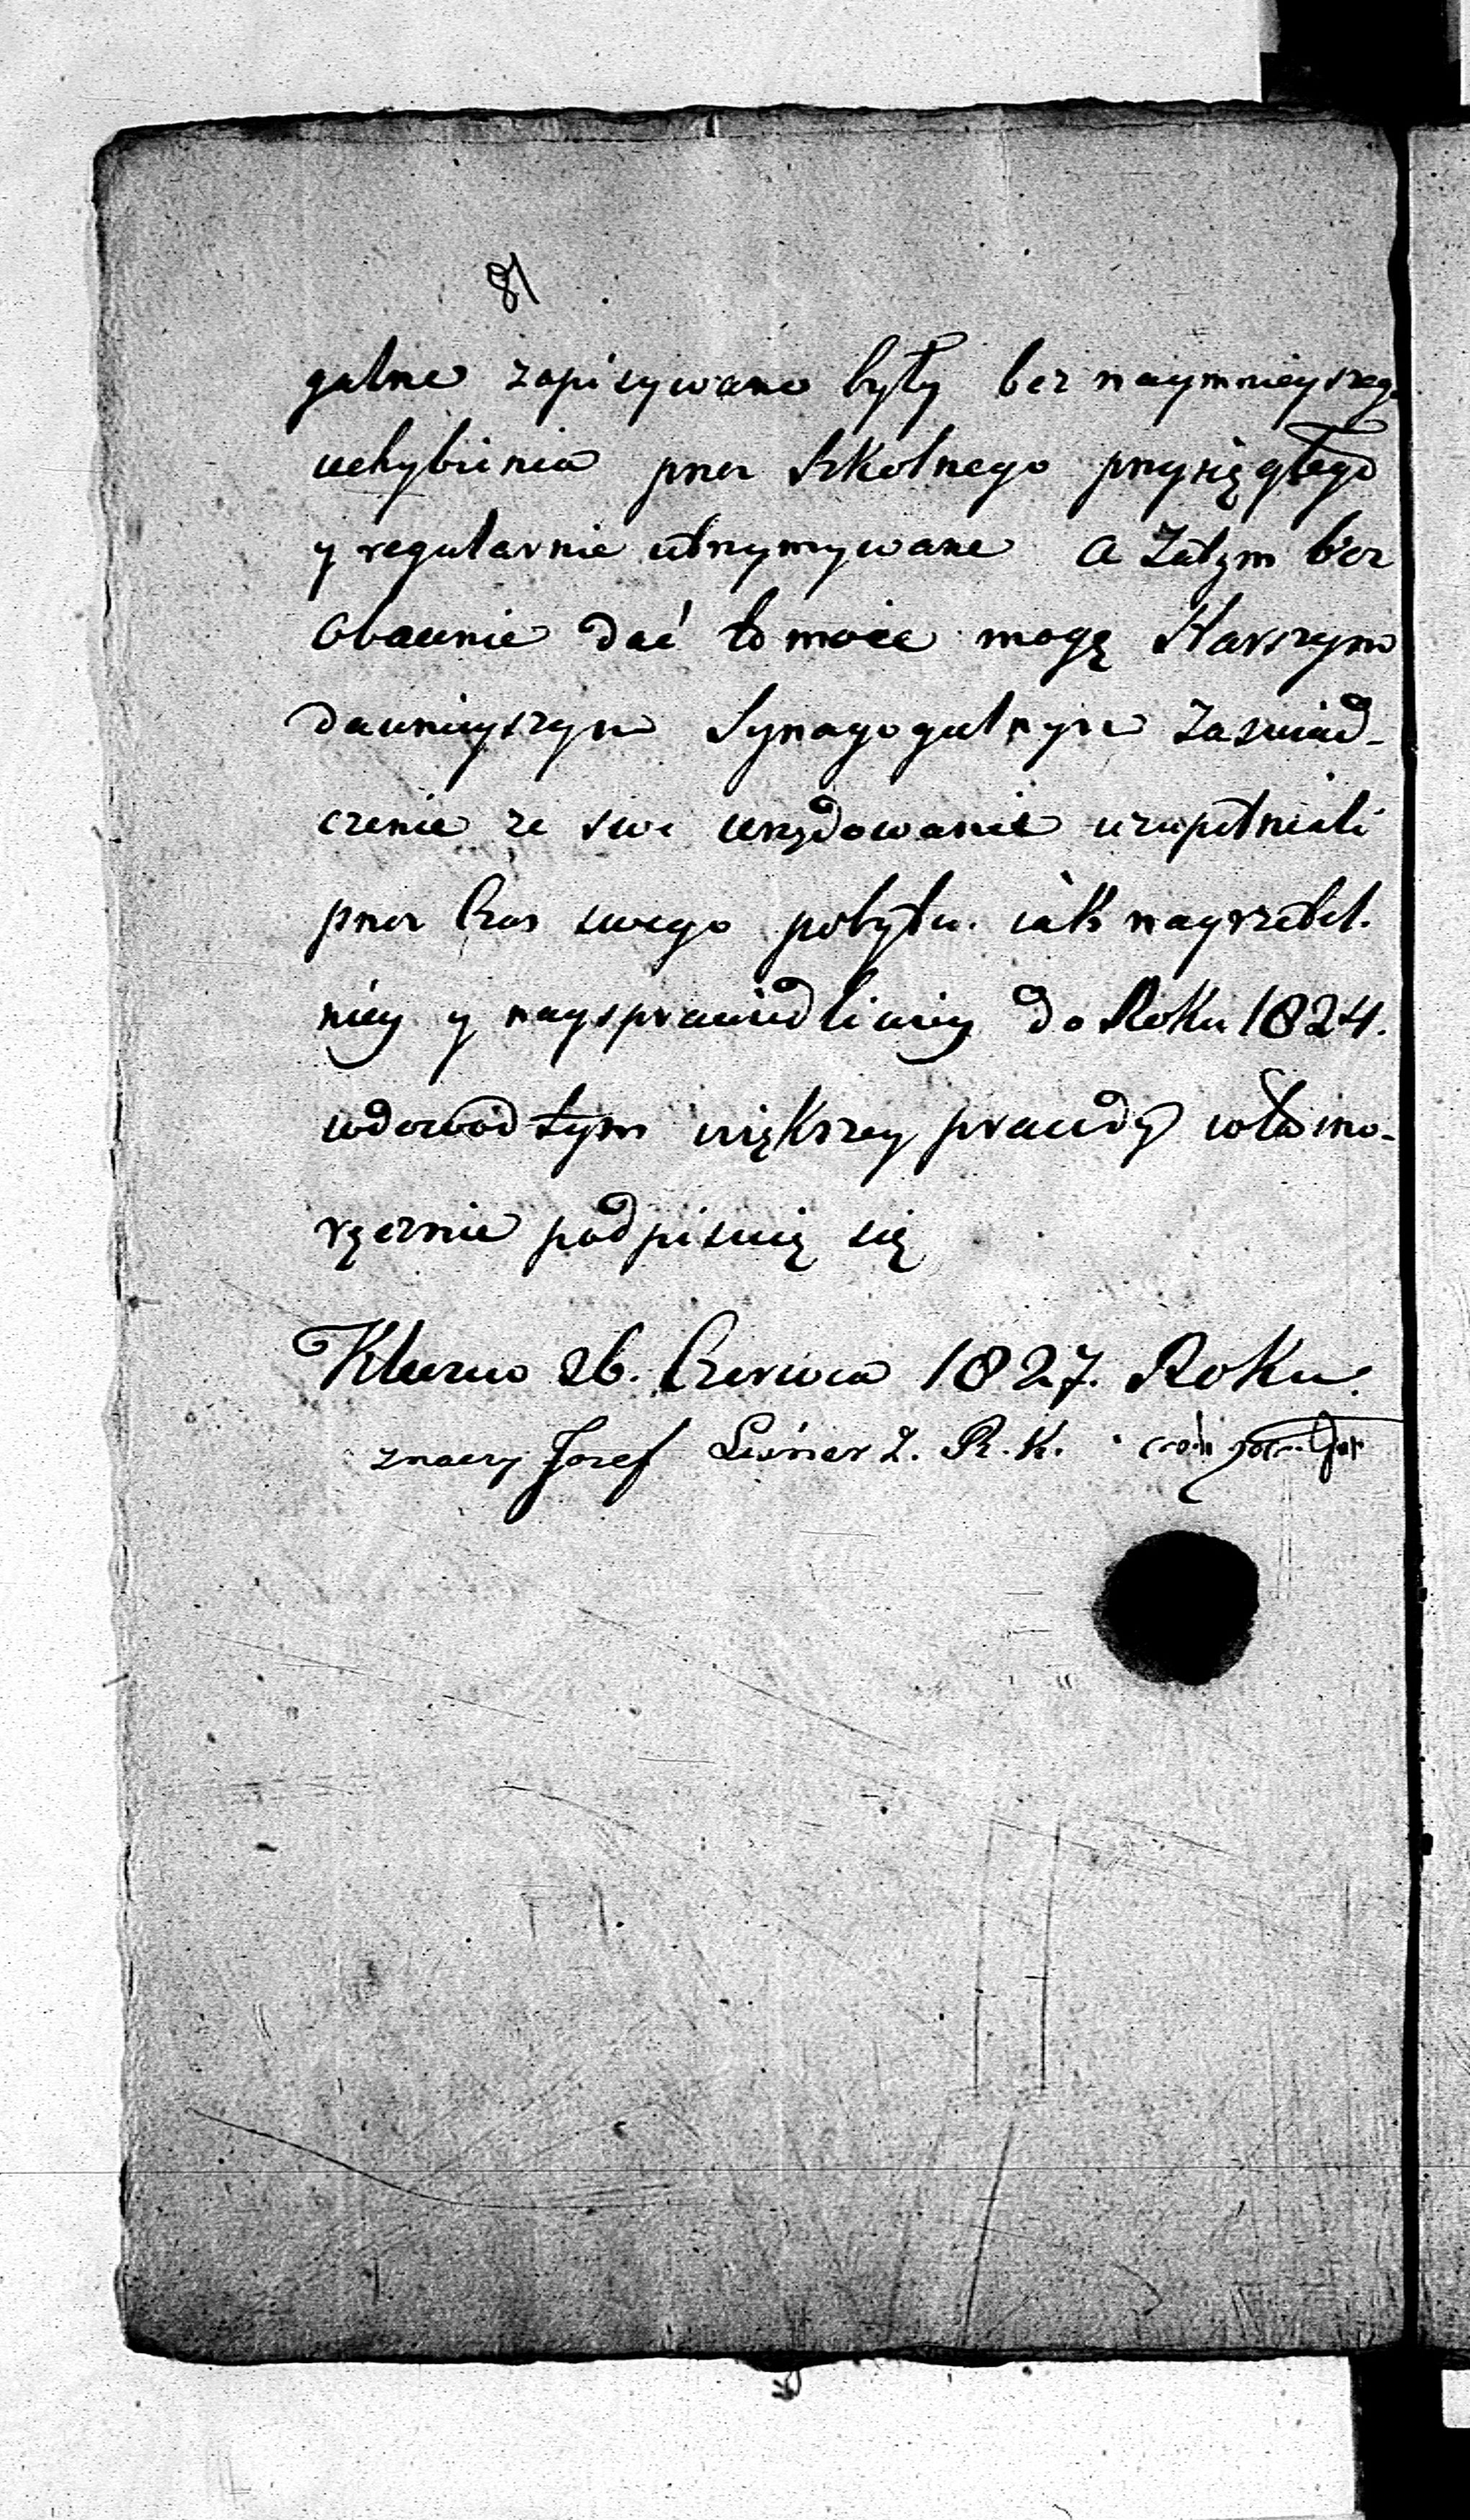 81
galne zapisywane były bez naymnieyszego
uchybienia przez Szkolnego przysięgłego
y regularnie utrzymywane a Zatym bez
obawnie dać to moie mogę Starszym
dawnieyszym Synagogalnym Zaswiad-
czenie że swe urzędowanie uzupełniali
przez Czas swego pobytu. iak nayrzetel-
niey y naysprawiedliwiey do Roku 1824.
wdowód tym większey prawdy własno-
ręcznie podpisuię się
26. Czerwca 1827. Roku.
Jozef R. K.